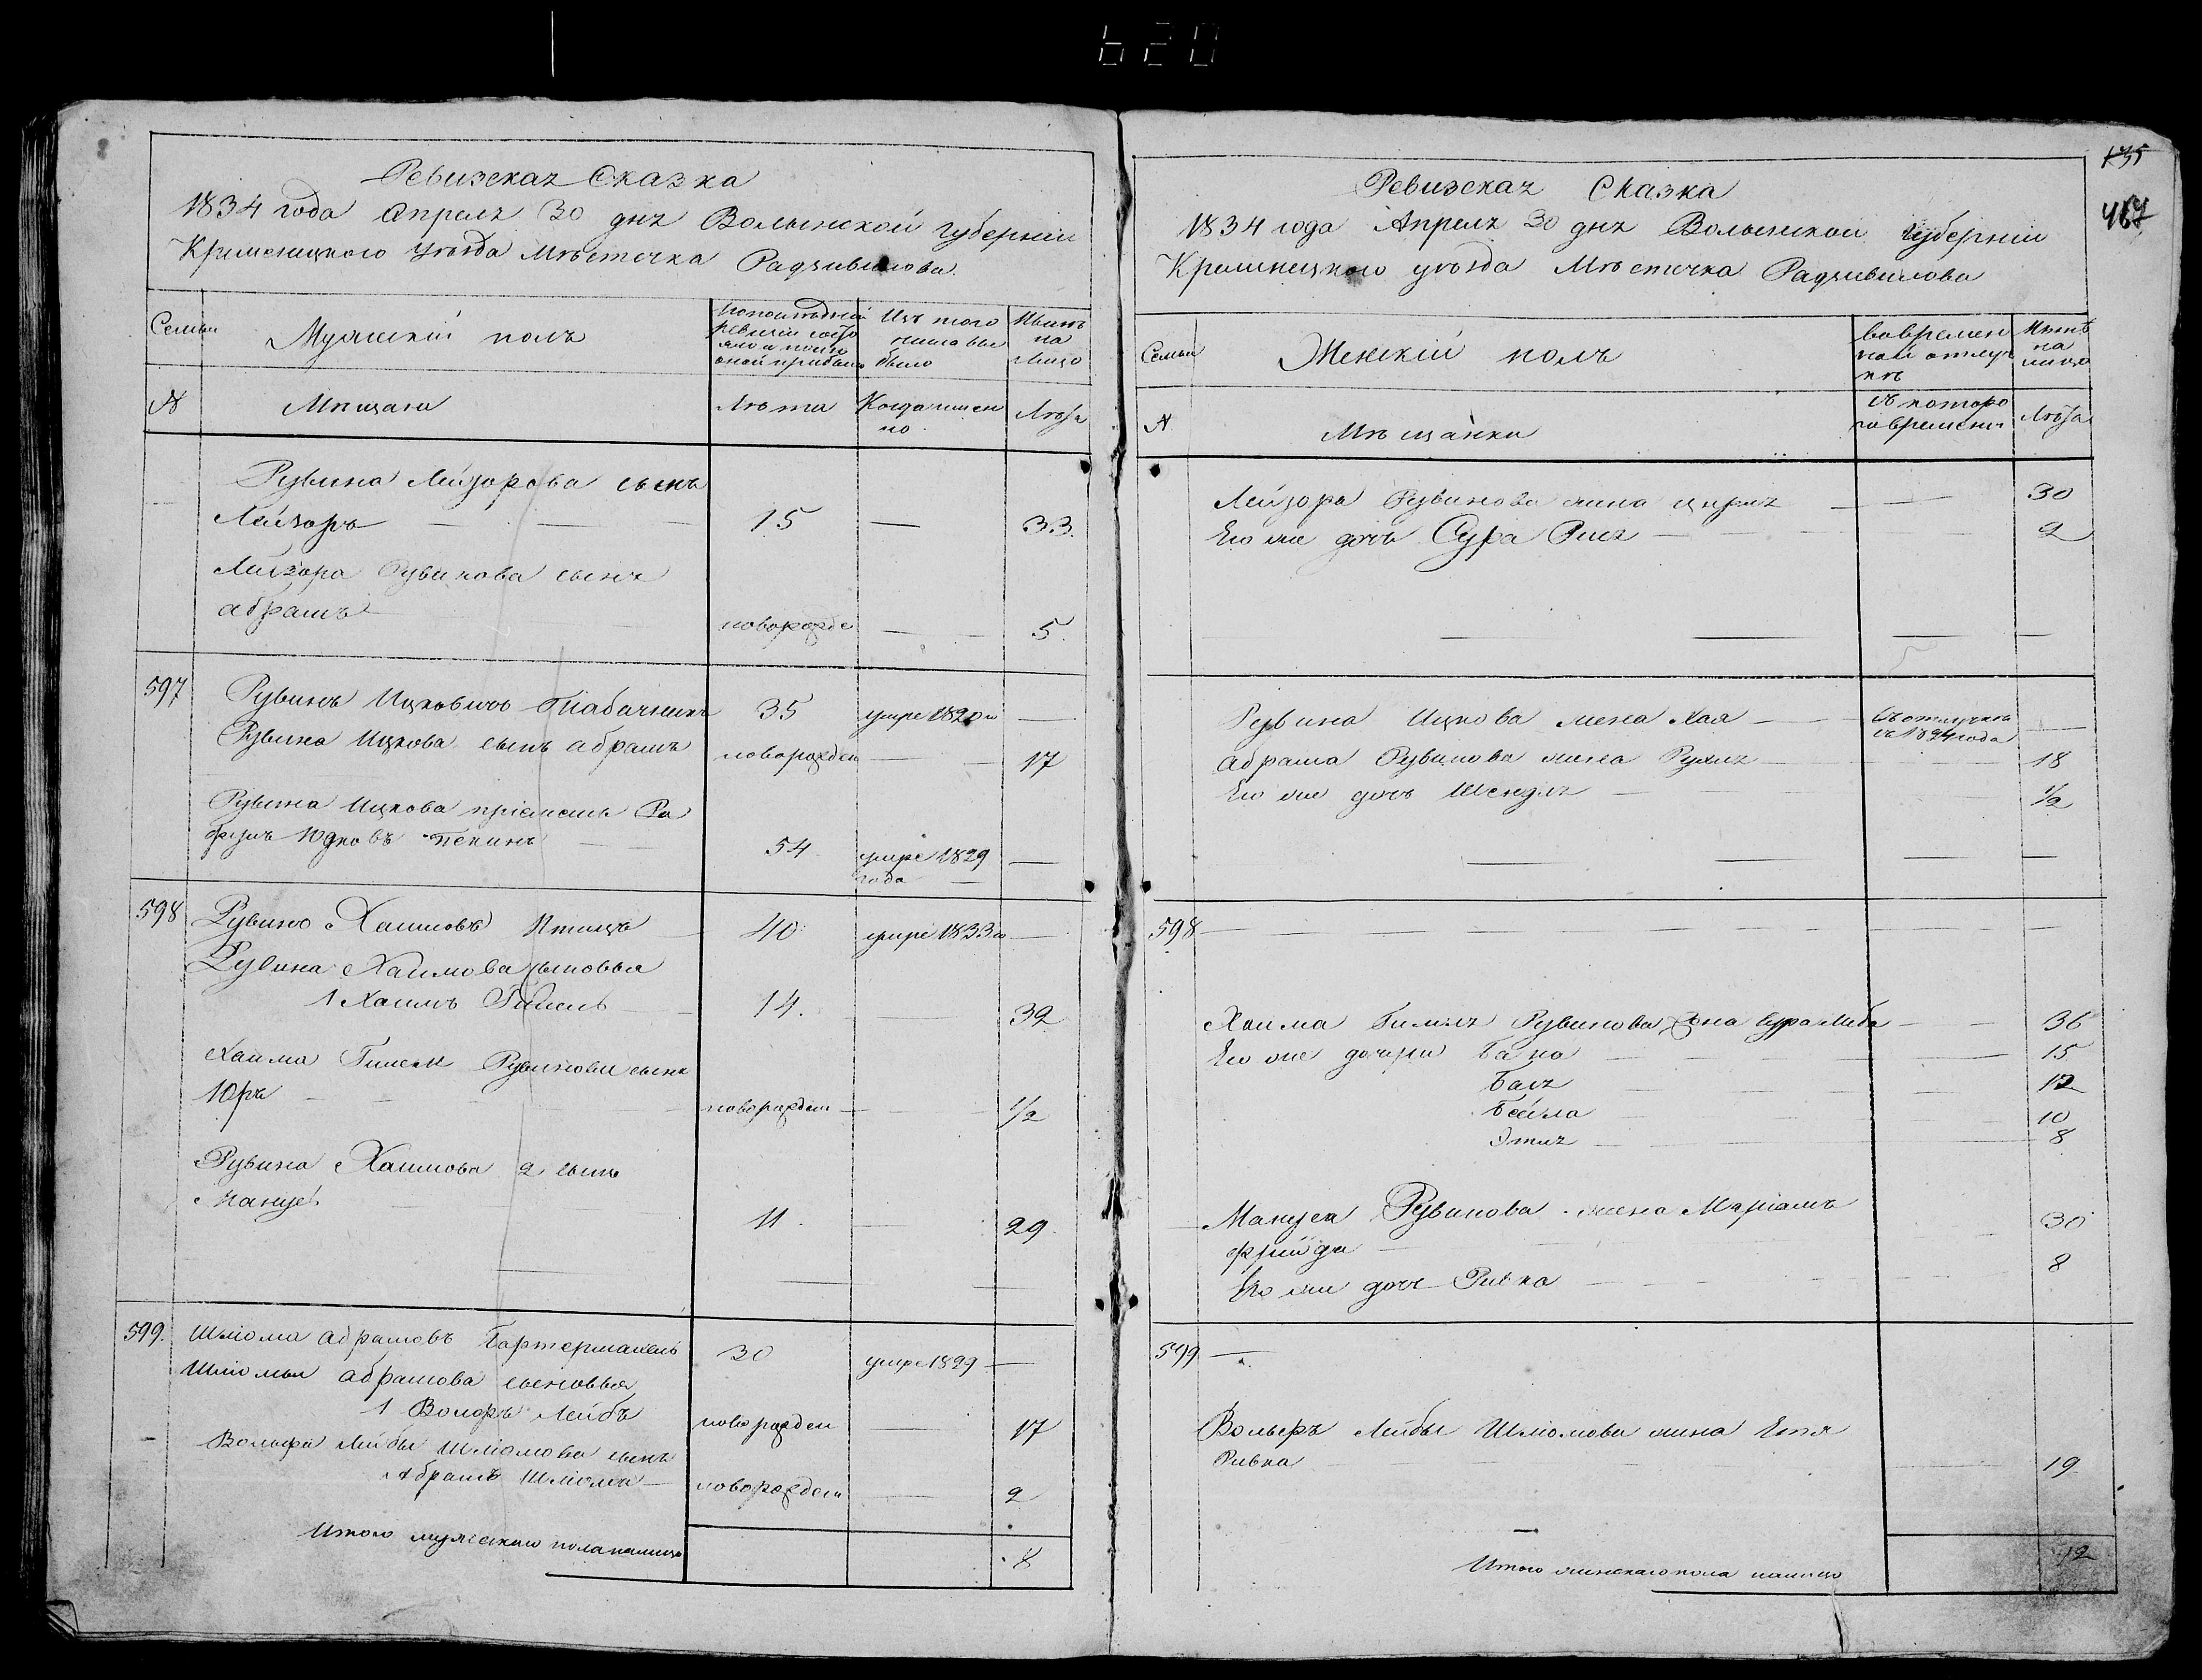 620
Ревизская Сказка
1834 года Апреля 30 дня Волынской губернии
Кременецкого уезда Мѣстечка Радзивилова
Семьи
Мужский полъ
По последней
ревизии состо
яло и после
оной прибыло
Изъ того
числа вы
было
Нынѣ
на
лицо
№
Мѣщане
Лѣта
Когда имен
но
Лѣта
Рувина Лейзорова сынъ
Лейзоръ — — 15 — 33.
Лейзора Рувинова сынъ
абрамъ новорожде — — 5.
597 Рувинъ Ицковичъ Табачникъ 35 умре 1820 го —
Рувина Ицкова сынъ абрамъ новорожден — — 17
Рувина Ицкова пріемышъ
Юдковъ 54 умре 1829 —
года
598 Рувинъ Хаимовъ Птицъ 40 умре 1833 го —
Рувина Хаимова сыновья
1 Хаимъ Гимель 14. — 32
Хаима Гимеля Рувинова сынъ
Юръ новорожден — — 1/2
Рувина Хаимова 2 сынъ
Манусъ 11. — 29.
599. Шліома абрамовъ Гартерманъ 30 умре 1829 —
Шліомы абрамова сыновья
1 Волфъ Лейбъ новорожден — 17
Вольфа Лейбы Шліомова сынъ
Абрамъ Шліома — новорожден — 2
Итого мужескаго пола налицо 8
135
467
Ревизская Сказка
1834 года Апреля 30 дня Волынской губернии
Кременецкого уѣзда Мѣстечка Радзивилова
Семьи
Женскій полъ
Во времен
ной отлуч
кѣ
Нынѣ
на
лицо
№
Мѣщанки
Съ которо
го времени
Лѣта
Лейзора Рувинова жена Цирля — — 30
Его же дочь Сура Рися — — 2
Рувина Ицкова жена Хая — — Въ отлучке —
съ 1824 года
Абрама Рувинова жена Рухля — — 18
Его же дочь Шендля — — 1/2
598 — — — — —
Хаима Гимеля Рувинова жена Сура Либа — — 36
Его же дочери Бана — — 15
Бася — — 12
Бейла — — 10
Этля — — 8
Мануса Рувинова жена Маріамъ 30
фрейда
Его же дочь Ривка — — 8
599 —
Вольфъ Лейбы Шліомова жена Етя
Ривка — — 19
Итого женскаго пола налицо 12